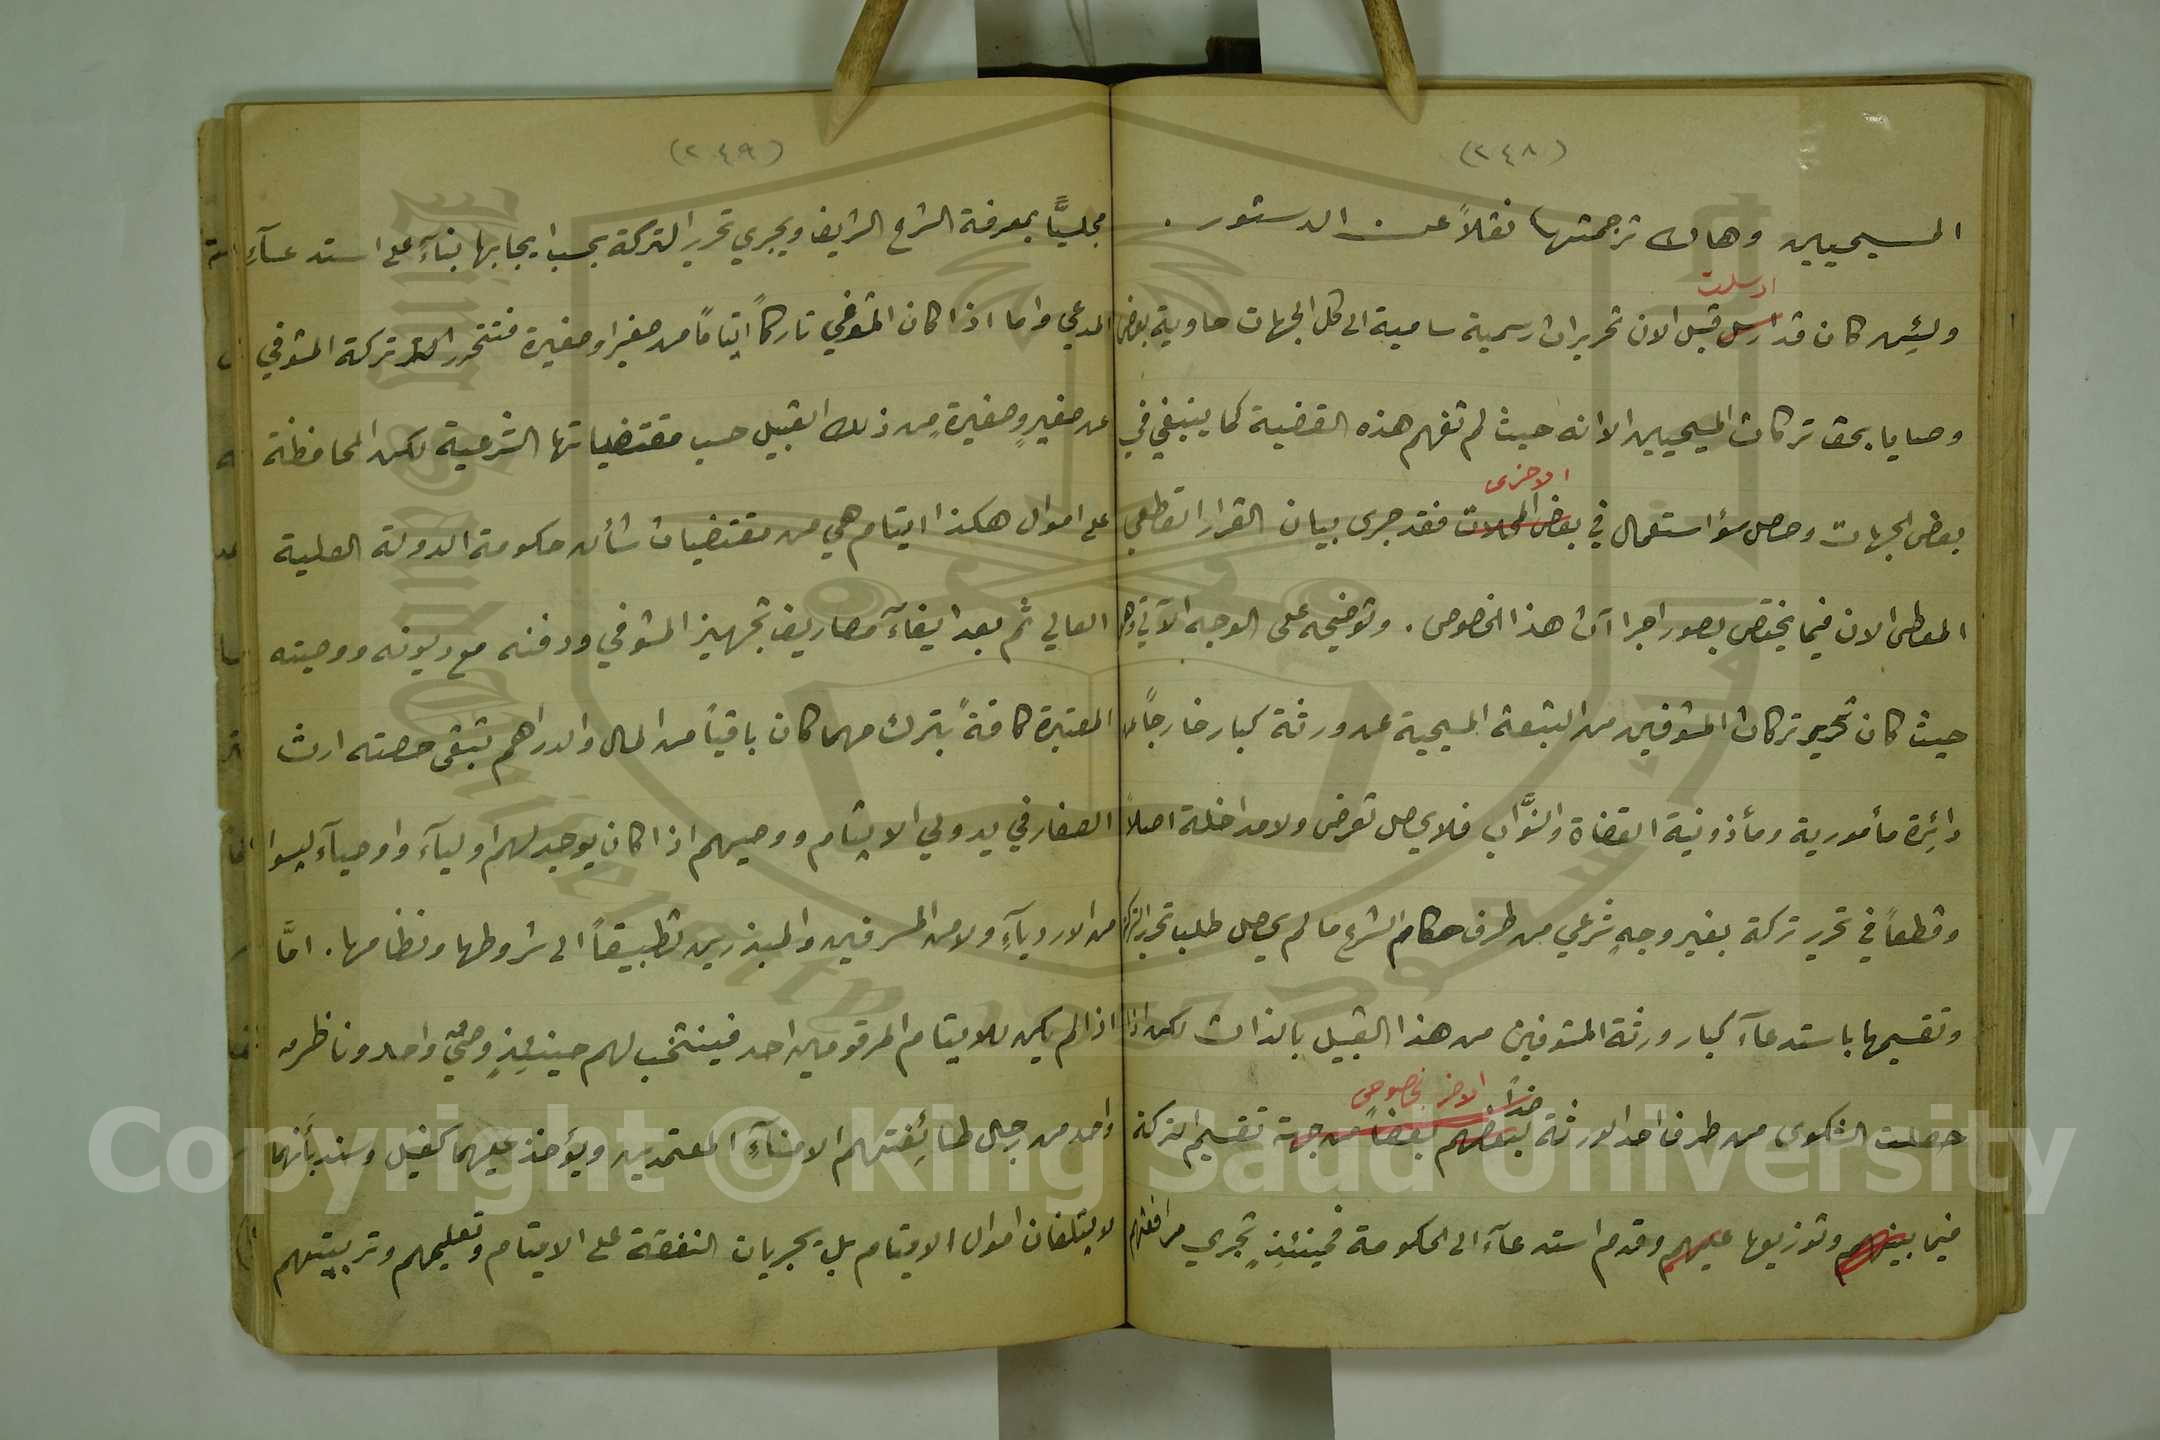 (٢٤٨)
المسيحيين وهاك ترجمتها نقلاً عن الدستور .
ارسلت
ولئِن كان قد ارسل قبل الان تحريرات رسمية سامية الى كل الجهات حاوية بعض
وصايا بحق تركات المسيحيين الا انه حيث لم تفهم هذه القضية كما ينبغي في
الاخرى
بعض الجهات وحصل سؤ استعمال في بعض المحلات فقد جرى بيان القرار القطعي
المعطى الان فيما يختص بصور اجراآت هذا الخصوص . وتوضيحه على الوجه الآتي وهو
حيث كان تحرير تركات المتوفين من التبعة المسيحية عن ورثة كبار خارجاً عن
دائِرة مأمورية ومأذونية القضاة والنوَّاب فلا يحصل تعرض ولا مداخلة اصلاً
وقطعاً في تحرير تركة بغير وجهٍ شرعي من طرف حكام الشرع ما لم يحصل طلب تحرير التركة
وتقسيمها باستدعآء كبار ورثة المتوفين من هذا القبيل بالذات لكن اذا
ضدَّ الاخر بخصوص
حصلت الشكوى من طرف احد الورثة لبعضهم بعضاً من جهة تقسيم التركة
فيما بينهم وتوزيعها عليهم وقدم استدعآء الى الحكومة فحينئذٍ تجري مرافعتهم
(٢٤٩)
مجلسيًّا بمعرفة الشرع الشريف ويجري تحرير التركة بحسب ايجابها بنآءً على استدعآءِ
المدعي واما اذا كان المتوفي تاركاً ايتاماً من صغير او صغيرة فتتحرر تركة المتوفي
عن صغيرٍ وصغيرةٍ من ذلك القبيل حسب مقتضياتها الشرعية لكن المحافظة
على اموال هكذا ايتام هي من مقتضيات شأن حكومة الدولة العلية
العالي ثم بعد ايفآء مصاريف تجهيز المتوفي ودفنه مع ديونه ووصيته
المعتبرة كافةً يترك مهما كان باقياً من المال والدراهم تبقى حصته ارث
الصغار في يد ولي الايتام ووصيهم اذا كان يوجد لهم اوليآء واوصيآء ليسوا
من الاردياءِ ولا من المسرفين والمبذرين تطبيقاً الى شروطها ونظامها . امَّا
اذا لم يكن للايتام المرقومين احد فينتخب لهم حينئِذٍ وصيٌّ واحد وناظر
واحد من رجال طائِفتهم الامنآءِ المعتمدين ويؤخذ عليهما كفيل وسند بأنهما
لا يتلفان اموال الايتام بل يجريان النفقة على الايتام وتعليمهم وتربيتهم
Copyright © King Saud University